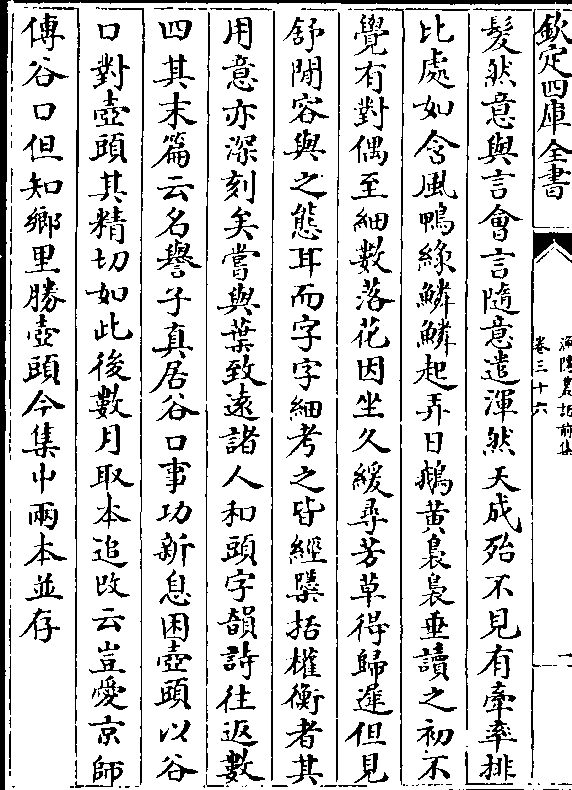 欽定四庫全書
漁隱叢話前集
卷三十六
一
髮然意與言會言隨意遣渾然天成殆不見有牽率排
比處如含風鴨緑鱗鱗起弄日鵝黃裊裊垂讀之初不
覺有對偶至細數落花因坐久緩尋芳草得歸遲但見
舒閒容與之態耳而字字細考之皆經櫽括權衡者其
用意亦深刻矣嘗與葉致遠諸人和頭字韻詩往返數
四其末篇云名譽子真居谷口事功新息困壺頭以谷
口對壺頭其精切如此後數月取本追改云豈愛京師
傳谷口但知鄉里勝壺頭今集中兩本並存